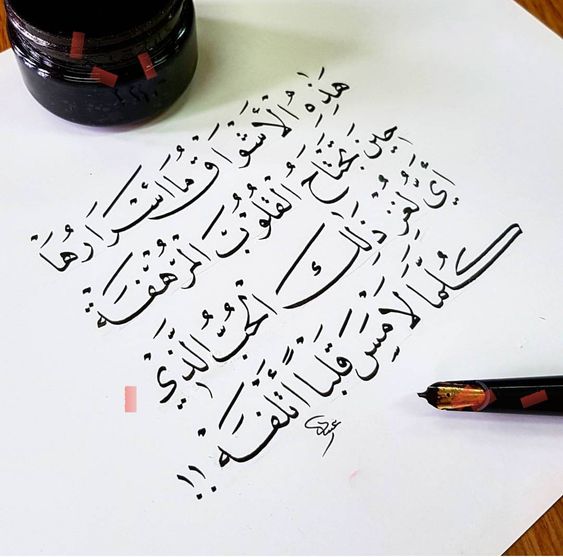 هَذِهِ الْأَشْوَاقُ مَا أَسْرَارُهَا
حِينَ تَجْتَاحُ الْقُلُوبَ الْمُرْهَفَةْ
أَيُّ لُغْزٍ ذَلِكَ الْحُبُّ الَّذِي
كُلَّمَا لَامَسَ قَلْبًا أَتْلَفَهْ !!